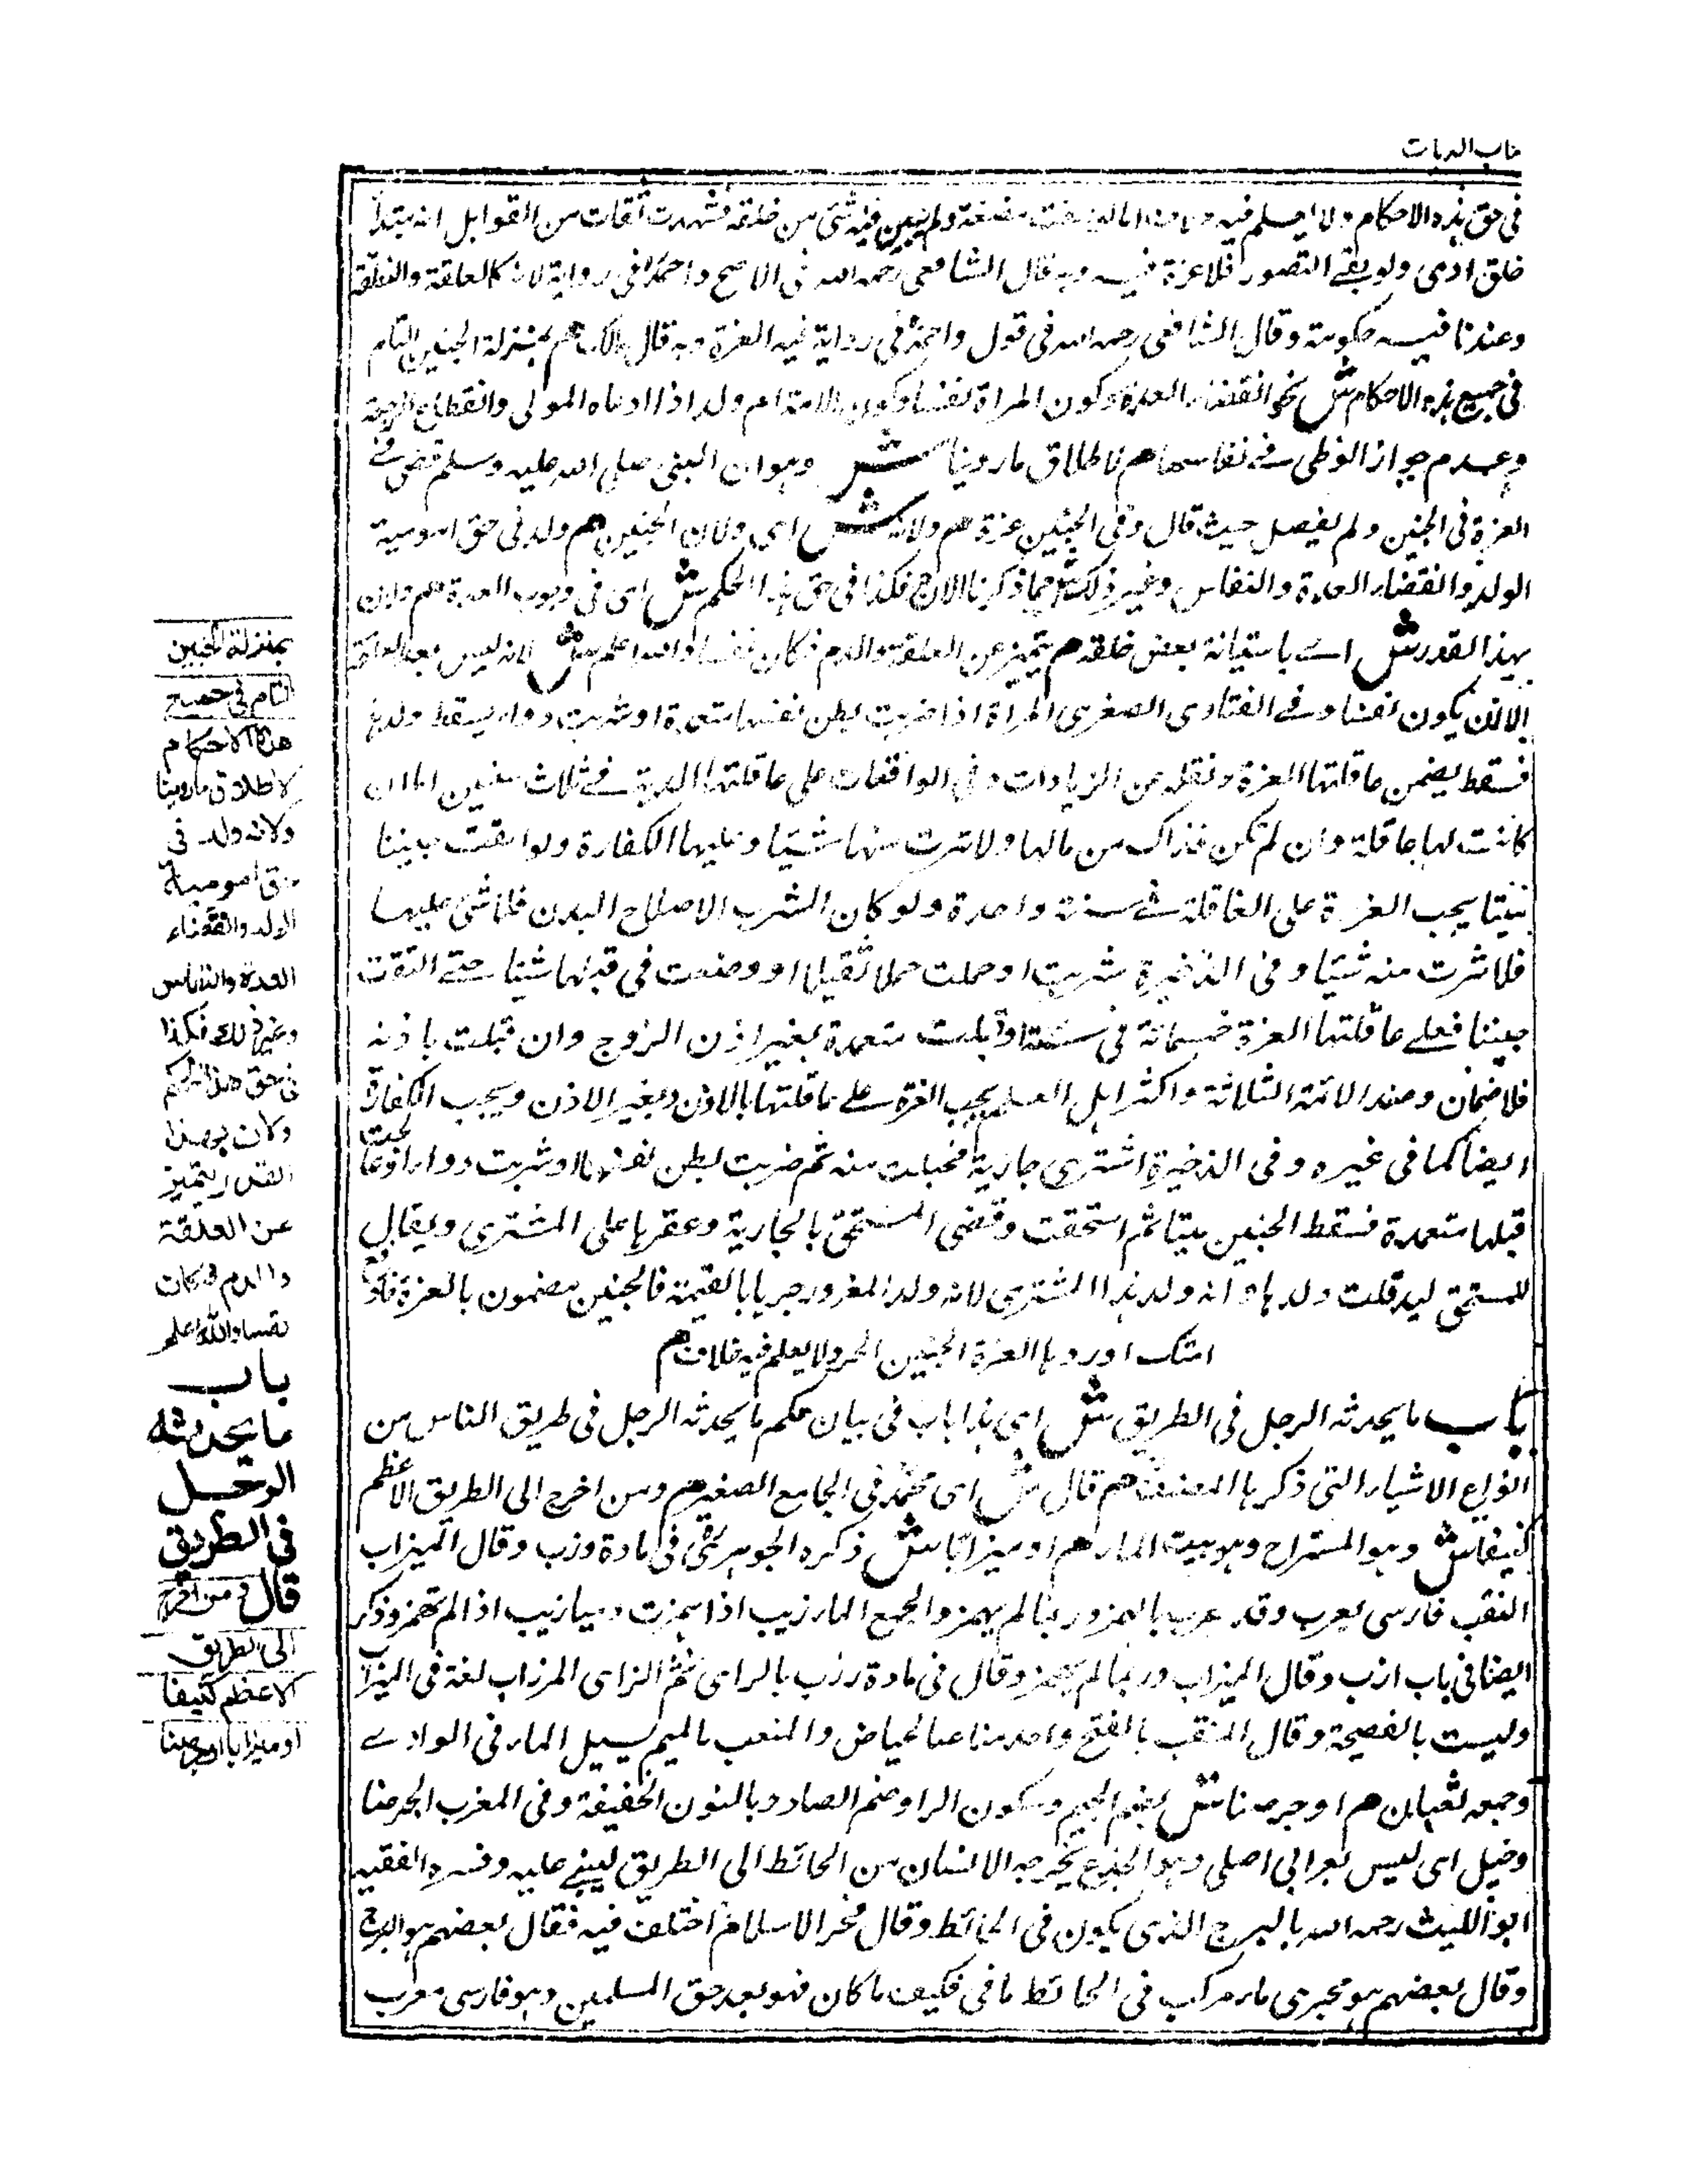 كتاب الديات
في حق هذه الاحكام ولا يعلم فيه مضغة ولم يتبين فيه شئ من خلقه فشهدت ثقات من القوابل انه مبتدأ
خلق ادمى ولو بقى التصور فلا غرة فيه وبه قال الشافعى رحمه الله فى الاصح واحمد فى رواية لانه كالعلقة والنطفة
وعندنا فيه حكومة وقال الشافعى رحمه الله فى قول واحمد فى رواية فيه الغرة وبه قال مالك هم بمنزلة الجنين التام
فى جميع هذه الاحكام ش نحو انقضاء العدة وكون المراة نفساء وكون الامة ام ولد اذا ادعاه المولى وانقطاع الرجعة
وعدم جواز الوطى فى نفاسها هم لاطلاق ما روينا ش وهو ان النبى صلى الله عليه وسلم قضى فى
الغرة فى الجنين ولم يفصل حيث قال وفى الجنين غرة هم ولانه ش اى ولان الجنين هم ولد فى حق امومية
الولد وانقضاء العدة والنفاس وغير ذلك ش مما ذكرنا الان هم فكذا فى حق هذا الحكم ش اى فى وجوب الغرة هم ولان
بهذا القدر ش اى باستبانة بعض خلقه هم يتميز عن العلقة والدم فكان نفسا والله اعلم ش لانه ليس بعد العلقة
الا ان يكون نفسا وفى الفتاوى الصغرى المراة اذا ضربت بطن نفسها متعمدة او شربت دواء ليسقط ولدها
فسقط يضمن عاقلتها الغرة ونقله من الزيادات وفى الواقعات على عاقلتها الدية فى ثلاث سنين ان
كانت لها عاقلة وان لم تكن فذاك من مالها ولا ترث منها شيئا وعليها الكفارة ولو القت جنينا
ميتا يجب الغرة على العاقلة فى سنة واحدة ولو كان الشرب لاصلاح البدن فلا شئ عليها
فلا ترث منه شيئا وفى الذخيرة شربت او حملت حملا ثقيلا او وضعت فى قبلها شيئا حتى القت
جنينا فعلى عاقلتها الغرة خمسمائة فى سنة ان فعلت متعمدة بغير اذن الزوج وان فعلت باذنه
فلا ضمان وعند الائمة الثلاثة واكثر اهل العلم يجب الغرة على عاقلتها بالاذن وبغير الاذن ويجب الكفارة
ايضا كما فى غيره وفى الذخيرة اشترى جارية فحبلت منه ثم ضربت بطن نفسها او شربت دواء او عالجت
قبلها متعمدة فسقط الجنين ميتا ثم استحقت وقضى للمستحق بالجارية وعقرها على المشترى ويقال
للمستحق ولدها وانه ولد هذا المشترى لانه ولد المغرور حر يا بالقيمة فالجنين مضمون بالغرة فادفع
امتك او ردها الغرة الجنين الحر ولا يعلم فيه خلاف هم
باب ما يحدثه الرجل فى الطريق ش اى هذا باب فى بيان حكم ما يحدثه الرجل فى طريق الناس من
انواع الاشياء التى ذكرها المصنف هم قال ش اى محمد فى الجامع الصغير هم ومن اخرج الى الطريق الاعظم
كنيفا ش وهو المستراح وهو بيت الماء هم او ميزابا ش ذكره الجوهرى فى مادة وزب وقال الميزاب
المثقب فارسى معرب وقد عرب بالهمز وربما لم يهمز والجمع المازيب اذا همزت وميازيب اذا لم تهمز وذكر
ايضا فى باب ازب وقال الميزاب وربما لم يهمز وقال فى مادة رزب بالراى ثم الزاى المرزاب لغة فى الميزاب
وليست بالفصيحة وقال المثقب بالفتح واحد مثاعب الحياض والثعب بالميم مسيل الماء فى الوادى
وجمعه ثعبان هم او جرصنا ش بضم الجيم وسكون الراء وضم الصاد وبالنون الخفيفة وفى المغرب الجرصن
دخيل اى ليس بعربى اصلى وهو الجذع يخرجه الانسان من الحائط الى الطريق ليبنى عليه وفسره الفقيه
ابو الليث رحمه الله بالبرج الذى يكون فى الحائط وقال فخر الاسلام اختلف فيه فقال بعضهم هو البرج
وقال بعضهم هو مجرى ماء مركب فى الحائط ما فى فكيف ما كان فهو بعد حق المسلمين وهو فارسى معرب
بمنزلة الجنين
التام فى جميع
هذه الاحكام
لاطلاق ما روينا
ولانه ولد فى
حق امومية
الولد وانقضاء
العدة والنفاس
وغير ذلك فكذا
فى حق هذا الحكم
ولان بهذا
القدر يتميز
عن العلقة
والدم فكان
نفسا والله اعلم
باب
ما يحدثه
الرجل
فى الطريق
قال ومن اخرج
الى الطريق
الاعظم كنيفا
او ميزابا او جرصنا